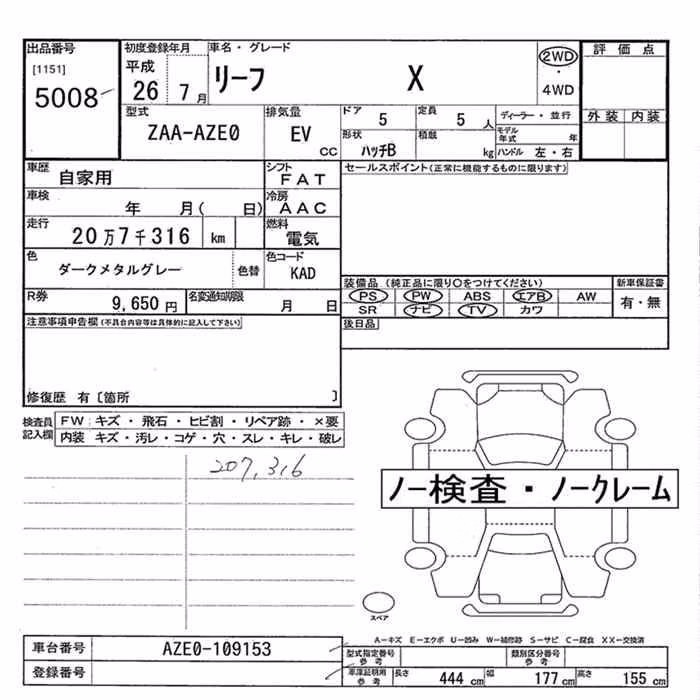 出品番号
[1151]
5008
初度登録年月
平成
26 7月
車名・グレード
リーフ X
2WD
・
4WD
評価点
外装 内装
型式
ZAA-AZE0
排気量
EV
CC
ドア
5
定員
5 人
ディーラー・並行
形状
ハッチB
積載
kg
モデル
年式 年
ハンドル 左・右
車歴
自家用
シフト
FAT
セールスポイント(正常に機能するものに限ります)
車検
年 月( 日)
冷房
AAC
走行
20万7千316 km
燃料
電気
色
ダークメタルグレー
色替
色コード
KAD
装備品 (純正品に限り○をつけてください)
PS PW ABS エアB AW
SR ナビ TV カワ
新車保証書
有・無
R券
9,650 円
名変通知期限
月 日
後日品
注意事項申告欄(不具合内容等は具体的に記入して下さい)
修復歴 有〔箇所 〕
検査員
記入欄
FW キズ・飛石・ヒビ割・リペア跡・×要
内装 キズ・汚レ・コゲ・穴・スレ・キレ・破レ
207,316
ノー検査・ノークレーム
スペア
A-キズ E-エクボ U-凹み W-補修跡 S-サビ C-腐食 XX-交換済
車台番号
AZE0-109153
登録番号
型式指定番号
参考
類別区分番号
参考
車庫証明用
参考
長さ 444 cm 幅 177 cm 高さ 155 cm